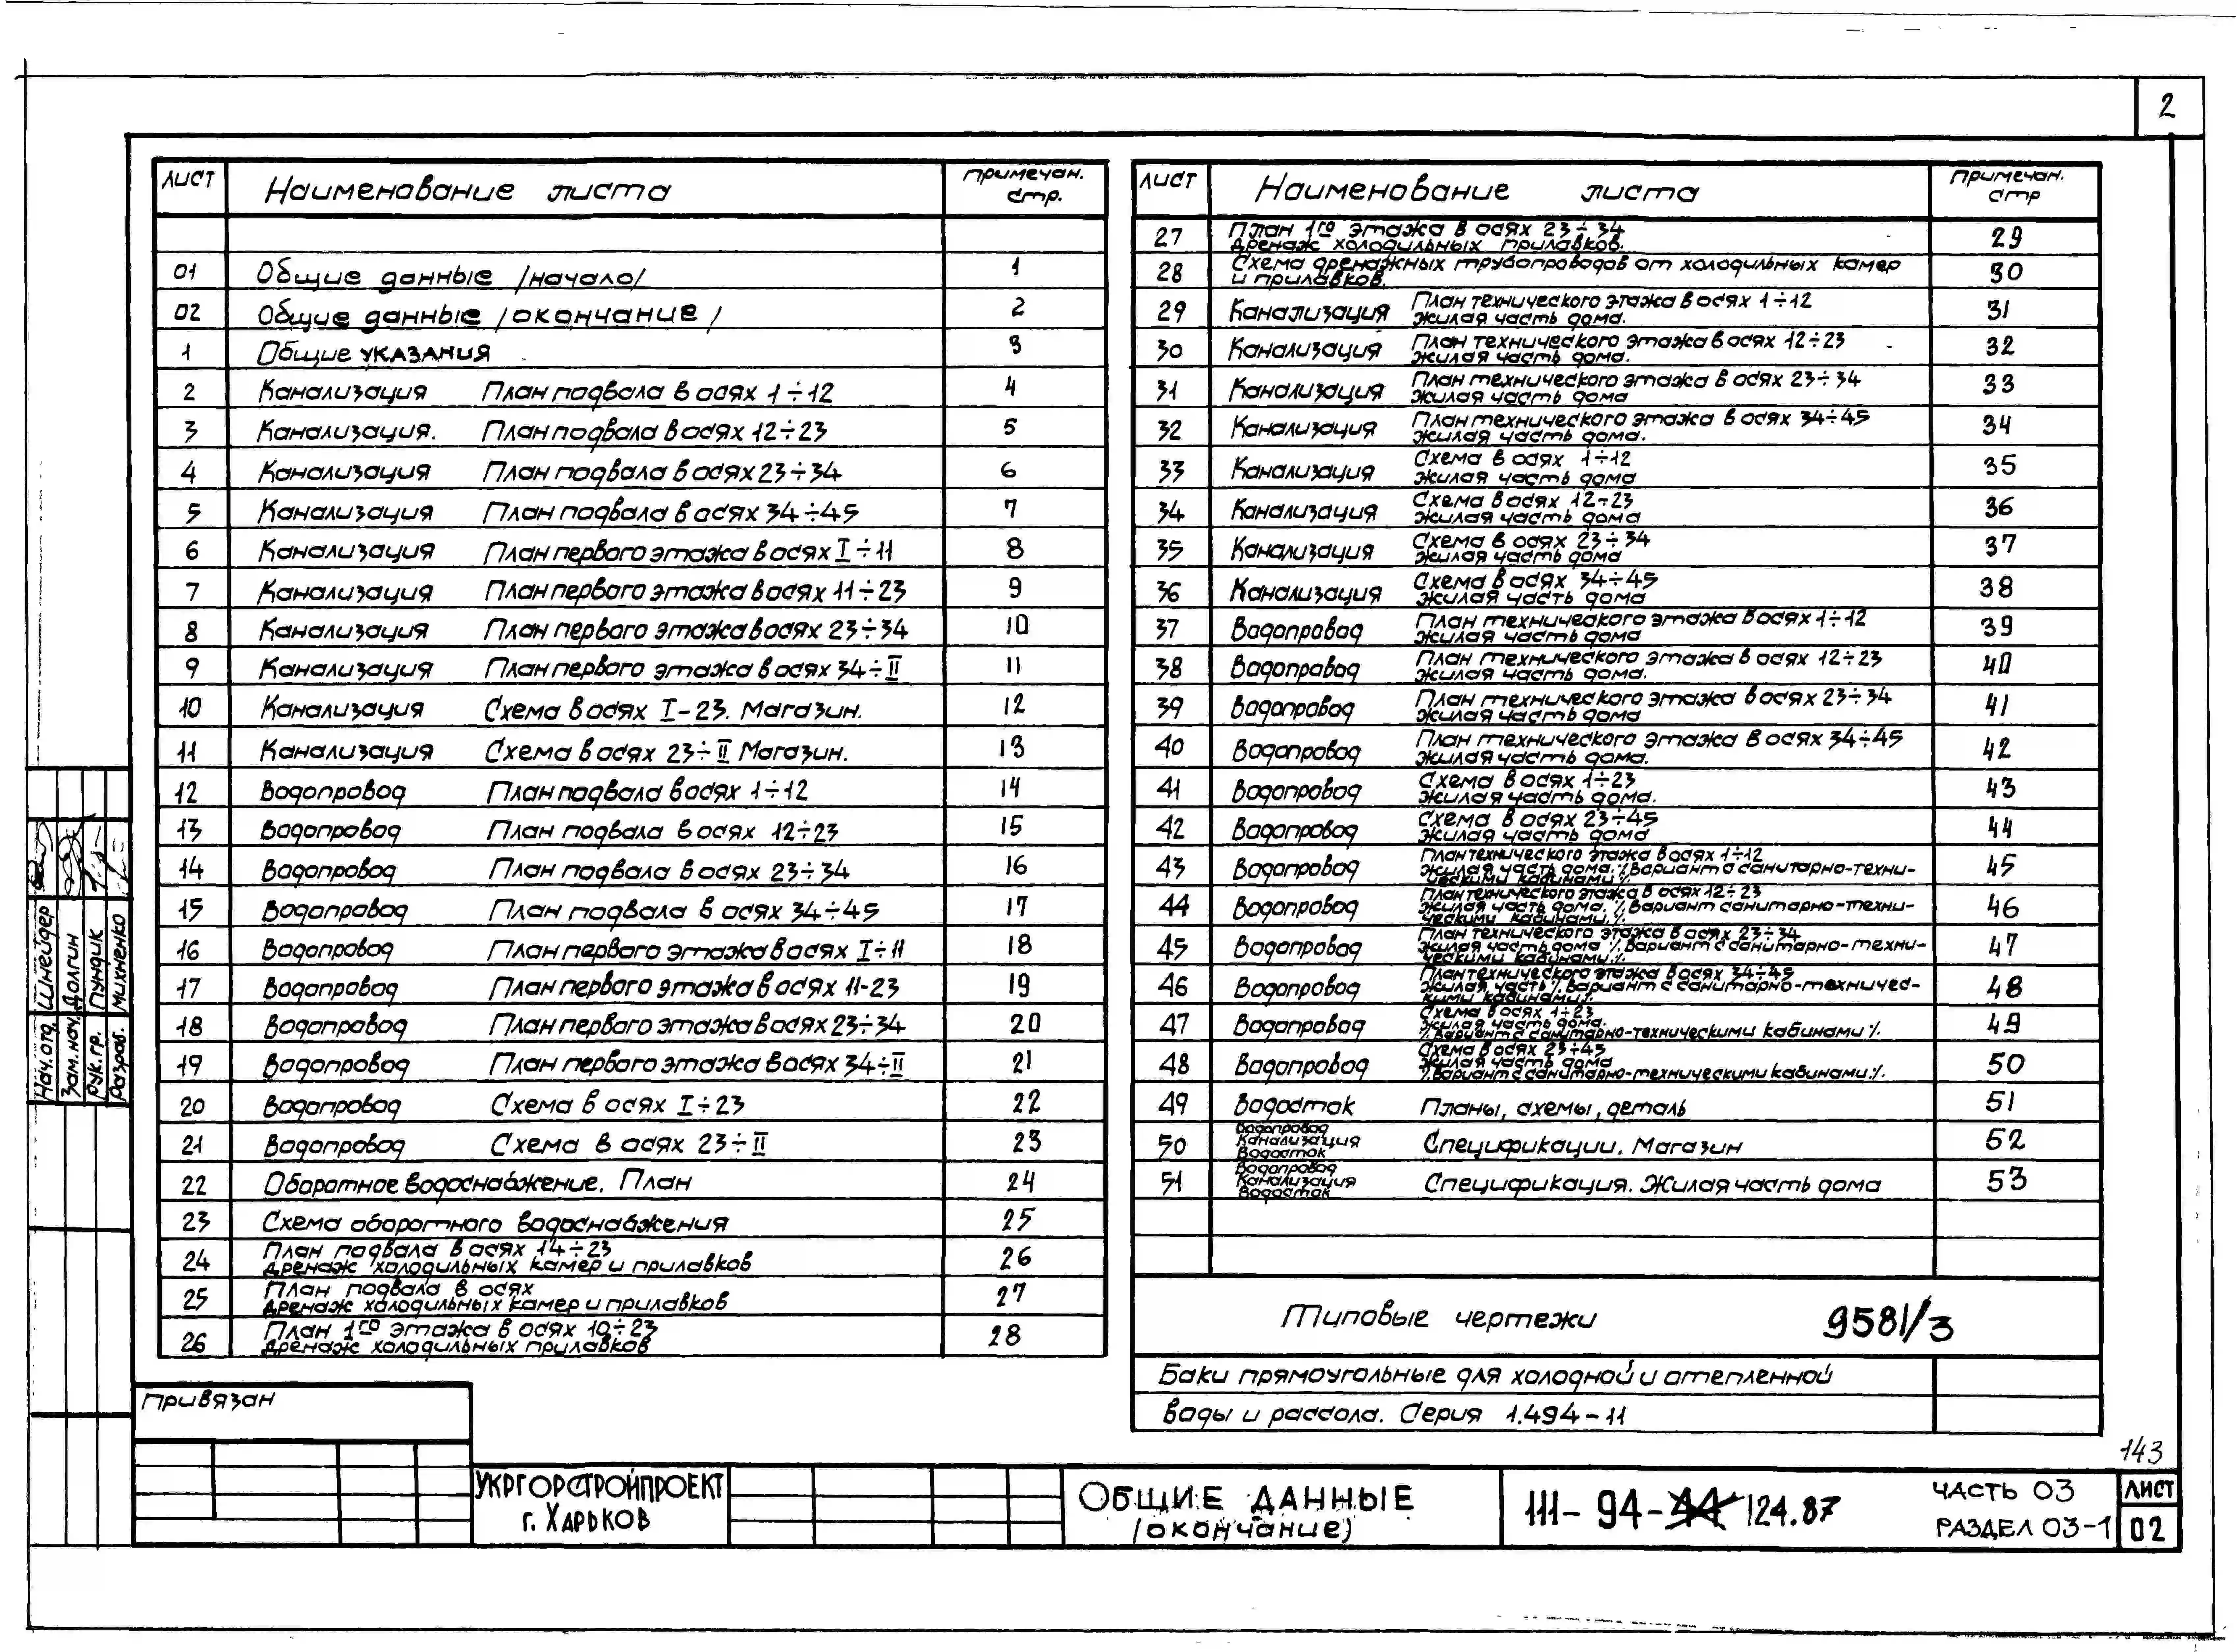 2
Лист Наименование листа Примечан. стр.
01 Общие данные /начало/ 1
02 Общие данные /окончание/ 2
1 Общие указания 3
2 Канализация План подвала в осях 1÷12 4
3 Канализация. План подвала в осях 12÷23 5
4 Канализация План подвала в осях 23÷34 6
5 Канализация План подвала в осях 34÷45 7
6 Канализация План первого этажа в осях I÷11 8
7 Канализация План первого этажа в осях 11÷23 9
8 Канализация План первого этажа в осях 23÷34 10
9 Канализация План первого этажа в осях 34÷II 11
10 Канализация Схема в осях I-23. Магазин. 12
11 Канализация Схема в осях 23÷II Магазин. 13
12 Водопровод План подвала в осях 1÷12 14
13 Водопровод План подвала в осях 12÷23 15
14 Водопровод План подвала в осях 23÷34 16
15 Водопровод План подвала в осях 34÷45 17
16 Водопровод План первого этажа в осях I÷11 18
17 Водопровод План первого этажа в осях 11-23 19
18 Водопровод План первого этажа в осях 23÷34 20
19 Водопровод План первого этажа в осях 34÷II 21
20 Водопровод Схема в осях I÷23 22
21 Водопровод Схема в осях 23÷II 23
22 Оборотное водоснабжение. План 24
23 Схема оборотного водоснабжения 25
24 План подвала в осях 14÷23
дренаж холодильных камер и прилавков 26
25 План подвала в осях
дренаж холодильных камер и прилавков 27
26 План 1го этажа в осях 10÷23
дренаж холодильных прилавков 28
Лист Наименование листа Примечан. стр
27 План 1го этажа в осях 23÷34
дренаж холодильных прилавков. 29
28 Схема дренажных трубопроводов от холодильных камер
и прилавков. 30
29 Канализация План технического этажа в осях 1÷12
жилая часть дома. 31
30 Канализация План технического этажа в осях 12÷23
жилая часть дома. 32
31 Канализация План технического этажа в осях 23÷34
жилая часть дома 33
32 Канализация План технического этажа в осях 34÷45
жилая часть дома. 34
33 Канализация Схема в осях 1÷12
жилая часть дома 35
34 Канализация Схема в осях 12÷23
жилая часть дома 36
35 Канализация Схема в осях 23÷34
жилая часть дома 37
36 Канализация Схема в осях 34÷45
жилая часть дома 38
37 Водопровод План технического этажа в осях 1÷12
жилая часть дома 39
38 Водопровод План технического этажа в осях 12÷23
жилая часть дома. 40
39 Водопровод План технического этажа в осях 23÷34
жилая часть дома 41
40 Водопровод План технического этажа в осях 34÷45
жилая часть дома. 42
41 Водопровод Схема в осях 1÷23
жилая часть дома. 43
42 Водопровод Схема в осях 23÷45
жилая часть дома 44
43 Водопровод План технического этажа в осях 1÷12
жилая часть дома. ⁒Вариант с санитарно-техни-
ческими кабинами⁒ 45
44 Водопровод План технического этажа в осях 12÷23
жилая часть дома. ⁒Вариант санитарно-техни-
ческими кабинами.⁒ 46
45 Водопровод План технического этажа в осях 23÷34
жилая часть дома ⁒Вариант с санитарно-техни-
ческими кабинами.⁒ 47
46 Водопровод План технического этажа в осях 34÷45
жилая часть ⁒Вариант с санитарно-техничес-
кими кабинами⁒. 48
47 Водопровод Схема в осях 1÷23
жилая часть дома.
⁒Вариант с санитарно-техническими кабинами⁒. 49
48 Водопровод Схема в осях 23÷45
жилая часть дома
⁒Вариант с санитарно-техническими кабинами⁒. 50
49 Водосток Планы, схемы, деталь 51
50 Водопровод
Канализация
Водосток Спецификации. Магазин 52
51 Водопровод
Канализация
Водосток Спецификация. Жилая часть дома 53
Типовые чертежи 9581/3
Баки прямоугольные для холодной и отепленной
воды и рассола. Серия 1.494-11
143
Нач.отд. Шнейдер
Зам.нач. Долгин
Рук.гр. Пундик
Разраб. Михненко
Привязан
УКРГОРСТРОЙПРОЕКТ
г. Харьков
Общие данные
/окончание)
111-94-44 124.87
Часть 03
Раздел 03-1
Лист
02